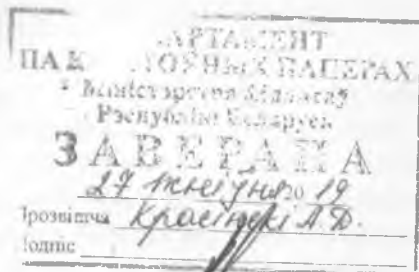 АРТАМЕНТ
ПА К ТОЎНЫХ ПАПЕРАХ
Міністэрства фінансаў
Рэспублікі Беларусь
ЗАВЕРАНА
27 жніўня 20 19
Прозвішча Красінскі А.Д.
Подпіс